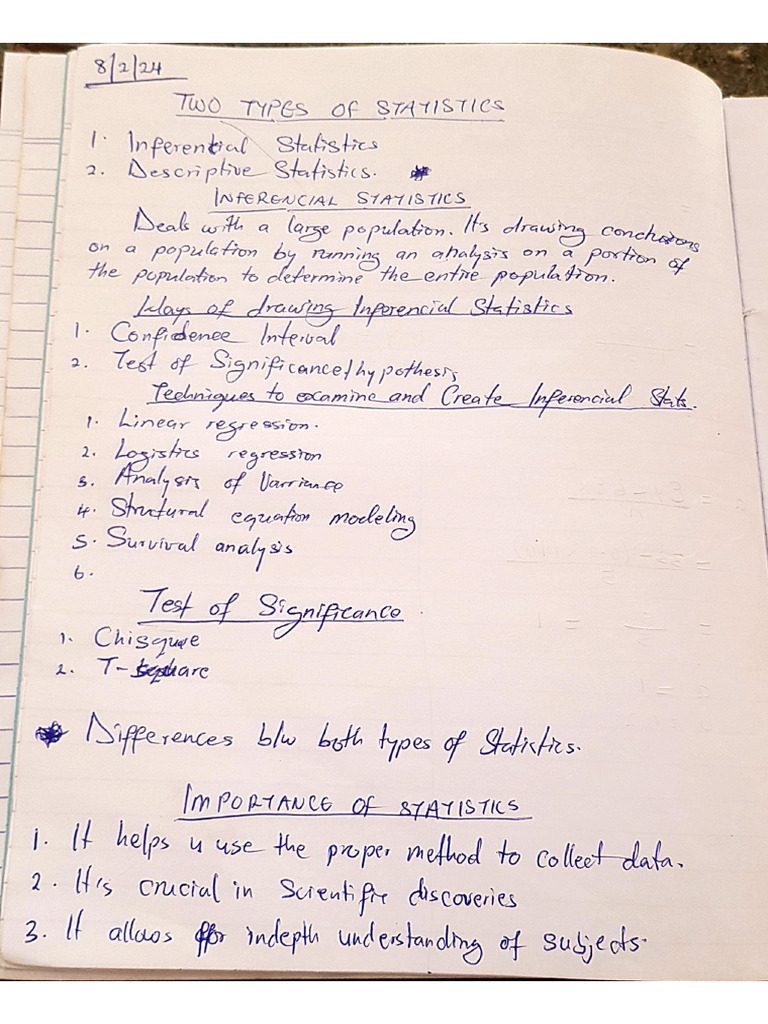 8/2/24
TWO TYPES OF STATISTICS
1. Inferential Statistics
2. Descriptive Statistics.
INFERENCIAL STATISTICS
Deals with a large population. It's drawing conclusions
on a population by running an analysis on a portion of
the population to determine the entire population.
Ways of drawing Inferencial Statistics
1. Confidence Interval
2. Test of Significance/hypothesis
Techniques to examine and Create Inferencial Stats.
1. Linear regression.
2. Logistics regression
3. Analysis of Varriance
4. Structural equation modeling
5. Survival analysis
6.
Test of Significance
1. Chisquare
2. T-square
Differences b/w both types of Statistics.
IMPORTANCE OF STATISTICS
1. It helps u use the proper method to collect data.
2. It's crucial in Scientific discoveries
3. It allows for indepth understanding of subjects.